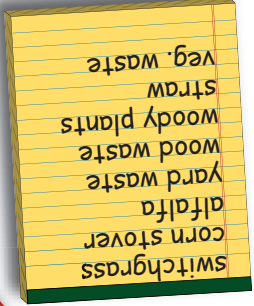 switchgrass
corn stover
alfalfa
yard waste
wood waste
woody plants
straw
veg. waste